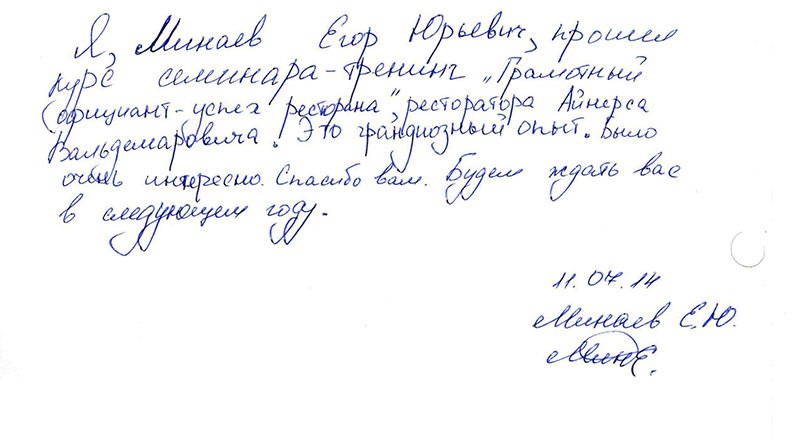 Я, Минаев Егор Юрьевич, прошел
курс семинара-тренинг „Грамотный
официант-успех ресторана", ресторатора Айнерса
Вальдемаровича. Это грандиозный опыт. Было
очень интересно. Спасибо вам. Будем ждать вас
в следующем году.
11.07.14
Минаев Е.Ю.
МинЕ.